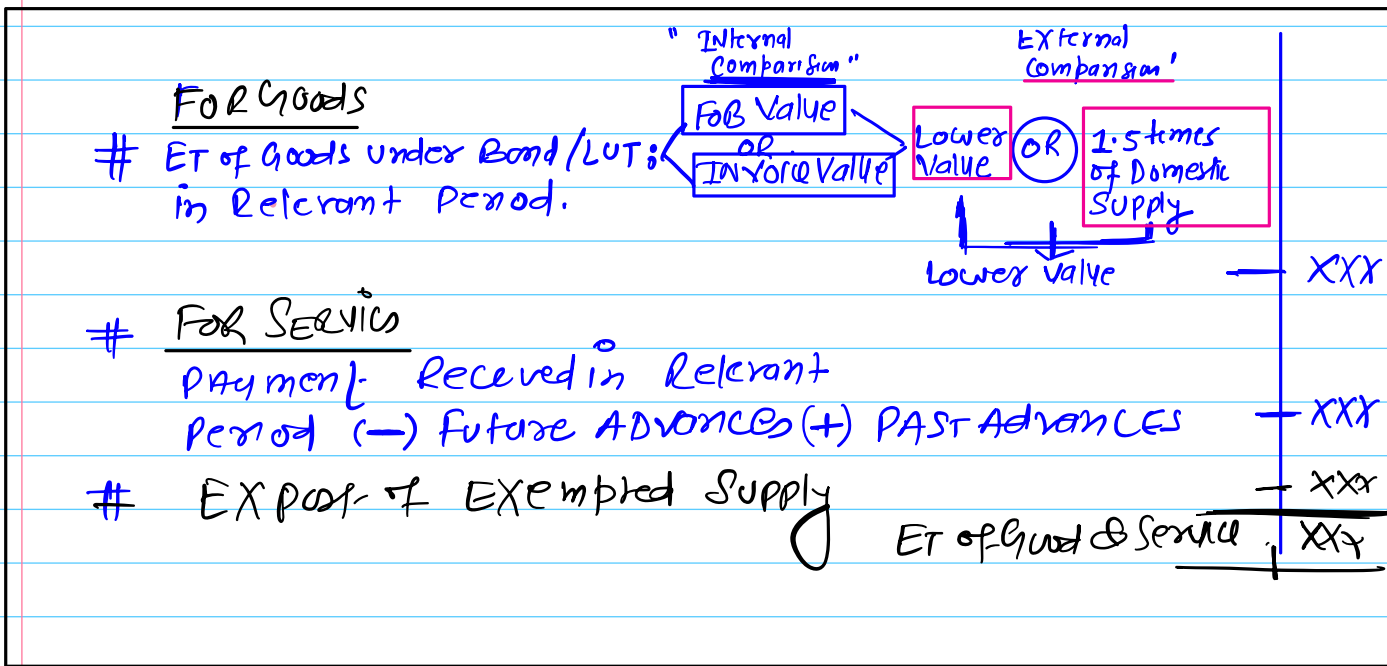 " Internal Comparision "
External Comparision '
FOR Goods
# ET of Goods under Bond/LUT :
in Relevant Period.
FOB Value
OR
INVOICE Value
Lower Value
OR
1.5 times of Domestic Supply
Lower Value — XXX
# FOR SERVICS
PAyment Receved in Relevant
Period (—) Future ADvances (+) PAST AdvanCES — XXX
# EXport of EXempted Supply — XXX
ET of Good & Service XXX